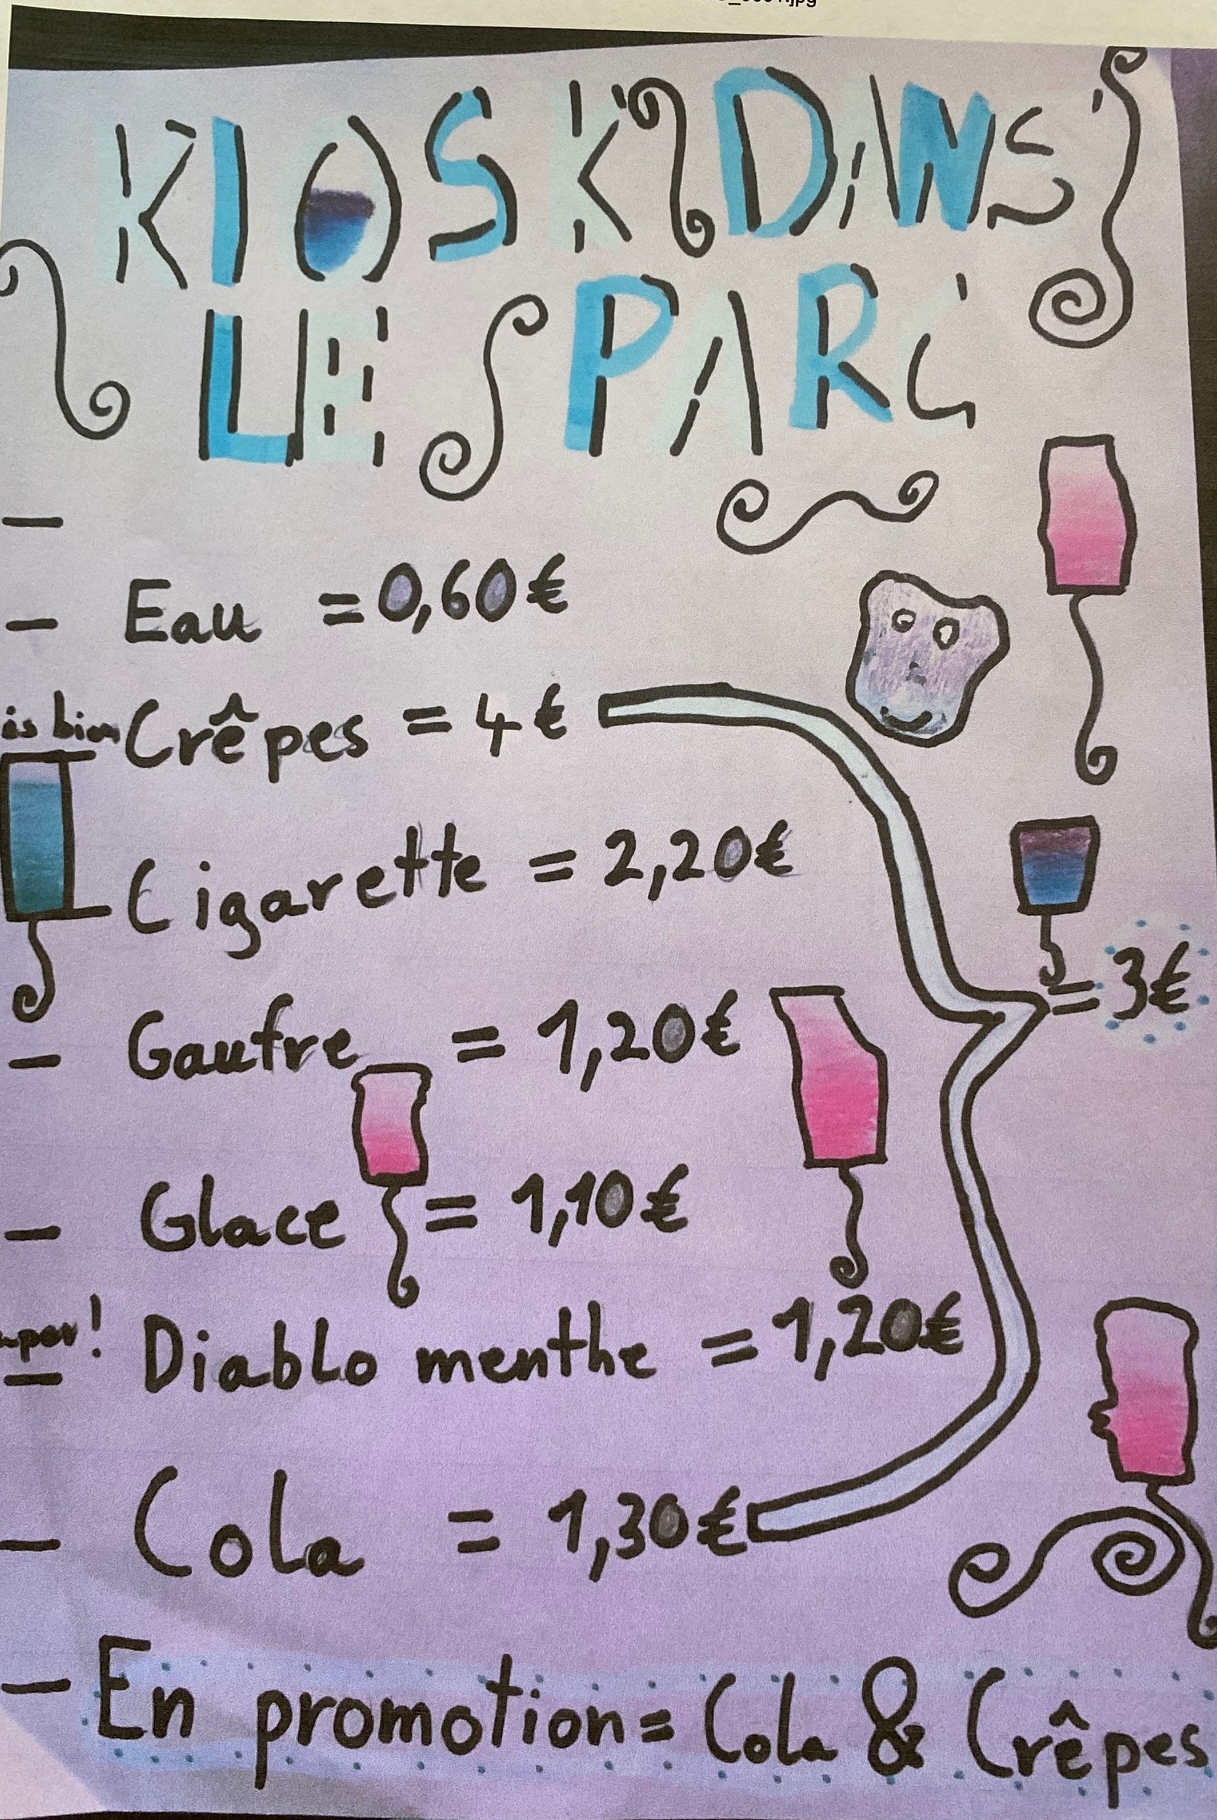 KIOSK DANS
LE PARC
—
— Eau = 0,60€
Crêpes = 4€
— Cigarette = 2,20€
= 3€
— Gaufre = 1,20€
— Glace = 1,10€
— Diablo menthe = 1,20€
— Cola = 1,30€
— En promotion = Cola & Crêpes